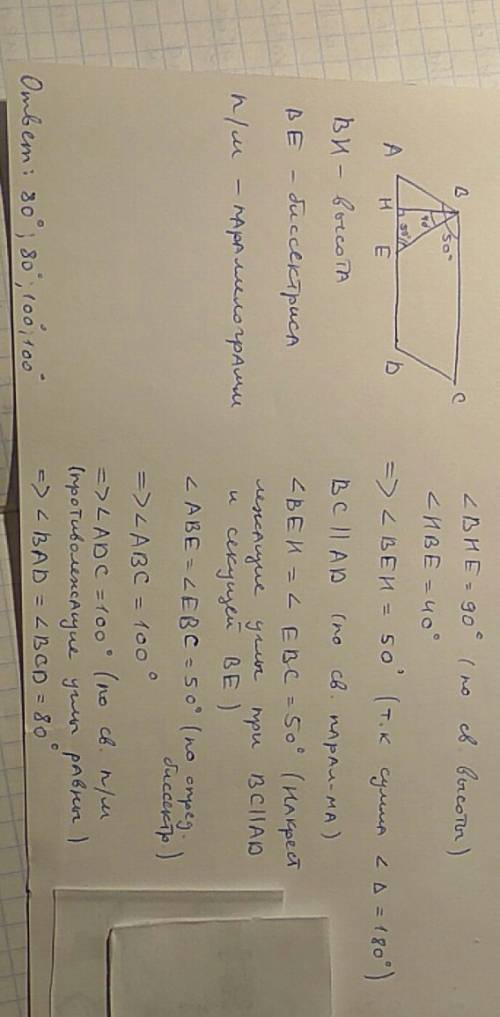 B
C
50°
40
50°
A
H
E
D
BH – высота
BE – биссектриса
п/м – параллелограмм
Ответ: 80°; 80°; 100°; 100°
∠BHE = 90° (по св. высоты)
∠HBE = 40°
=> ∠BEH = 50° (т.к сумма ∠ Δ = 180°)
BC || AD (по св. парал-ма)
∠BEH = ∠EBC = 50° (накрест
лежащие углы при BC || AD
и секущей BE)
∠ABE = ∠EBC = 50° (по опред.
биссектр)
=> ∠ABC = 100°
=> ∠ADC = 100° (по св. п/м
(противолежащие углы равны)
=> ∠BAD = ∠BCD = 80°